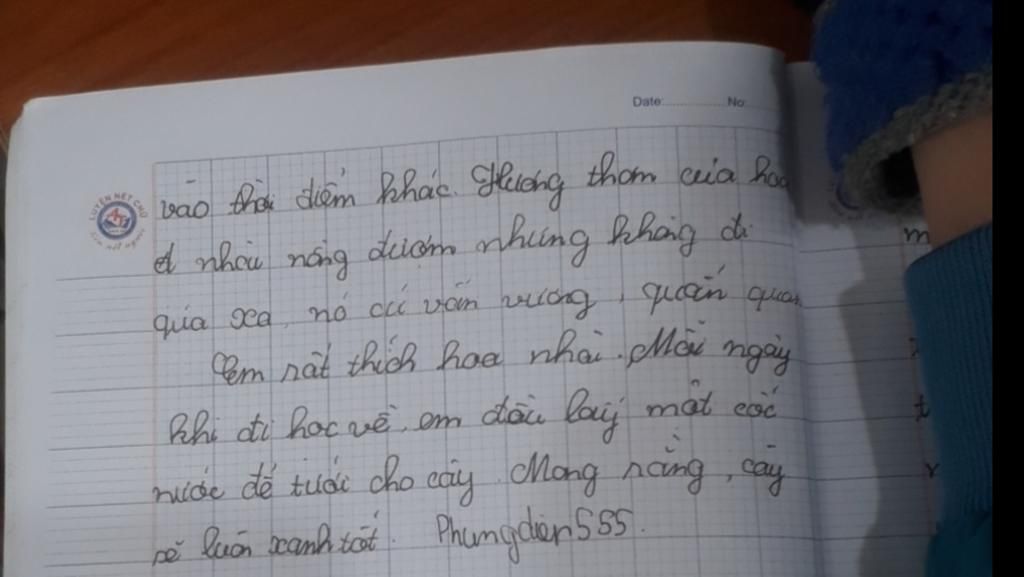 Date: No
LUYỆN NÉT CHỮ
vào thời điểm khác. Hương thơm của hoa
nhài nồng đượm nhưng không đi
quá xa, nó cứ vấn vương, quấn quan
Em rất thích hoa nhài. Mỗi ngày
khi đi học về, em đều lấy một cốc
nước để tưới cho cây. Mong rằng, cây
sẽ luôn xanh tốt. Phungdien555.